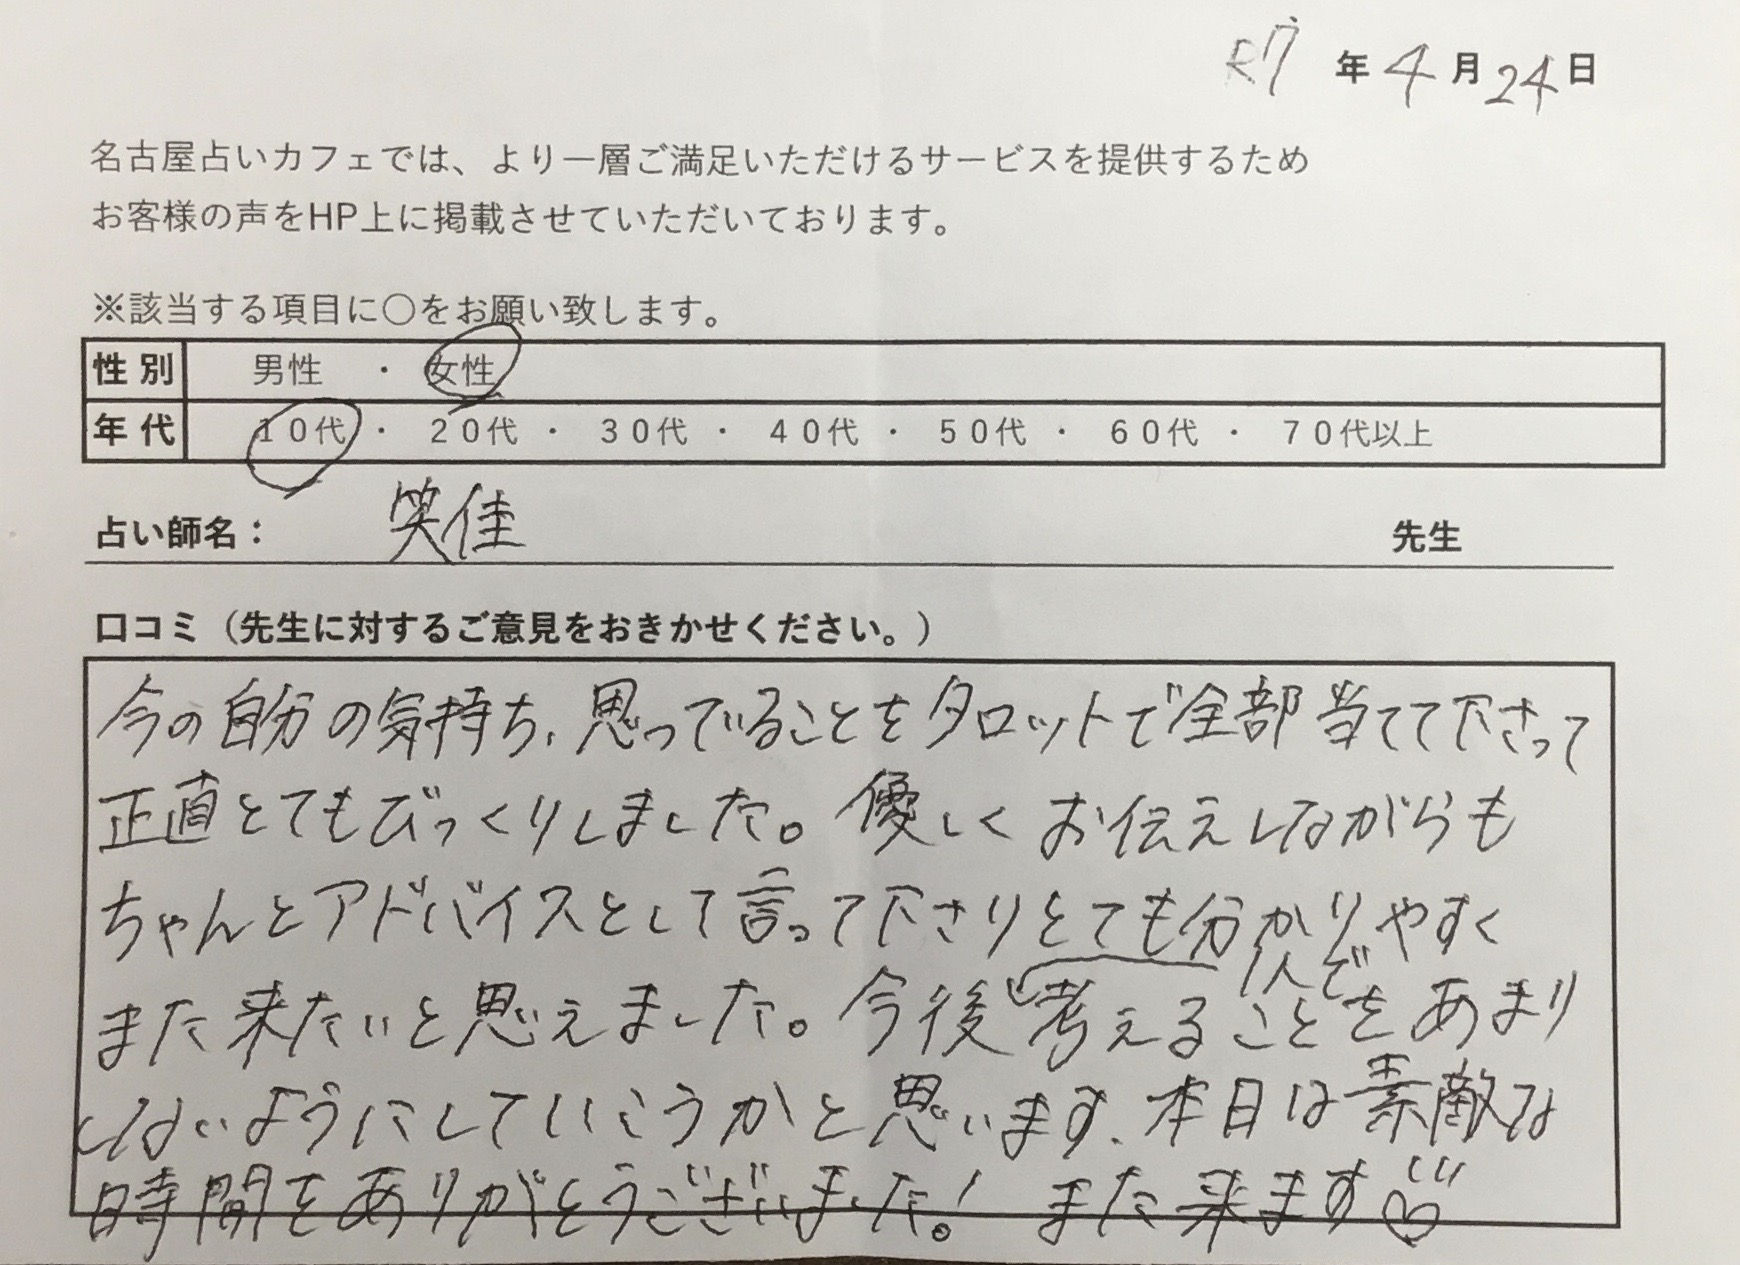 R7年4月24日
名古屋占いカフェでは、より一層ご満足いただけるサービスを提供するため
お客様の声をHP上に掲載させていただいております。
※該当する項目に○をお願い致します。
性別 男性 ・ 女性
年代 10代 ・ 20代 ・ 30代 ・ 40代 ・ 50代 ・ 60代 ・ 70代以上
占い師名： 笑佳 先生
口コミ（先生に対するご意見をおきかせください。）
今の自分の気持ち、思っていることをタロットで全部当てて下さって
正直とてもびっくりしました。優しくお伝えしながらも
ちゃんとアドバイスとして言って下さりとても分かりやすく
また来たいと思えました。今後1人で考えることをあまり
しないようにしていこうかと思います、本日は素敵な
時間をありがとうございました。！また来ます♡